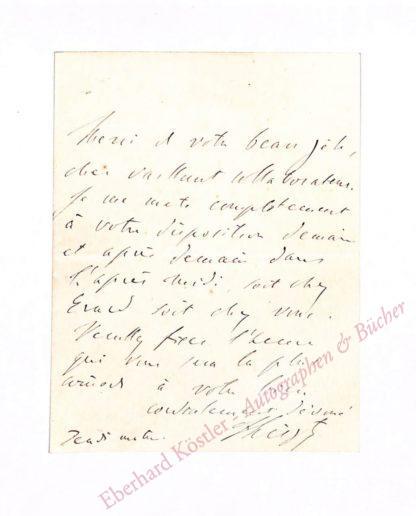 Merci de votre beau zèle,
cher vaillant collaborateur.
Je me mets complètement
à votre disposition demain
et après demain dans
l'après midi, soit chez
Erard soit chez vous.
Veuillez fixer l'heure
qui vous sera la plus
à votre
cordialement dévoué
Jeudi matin. FLiszt
Eberhard Köstler – Autographen & Bücher